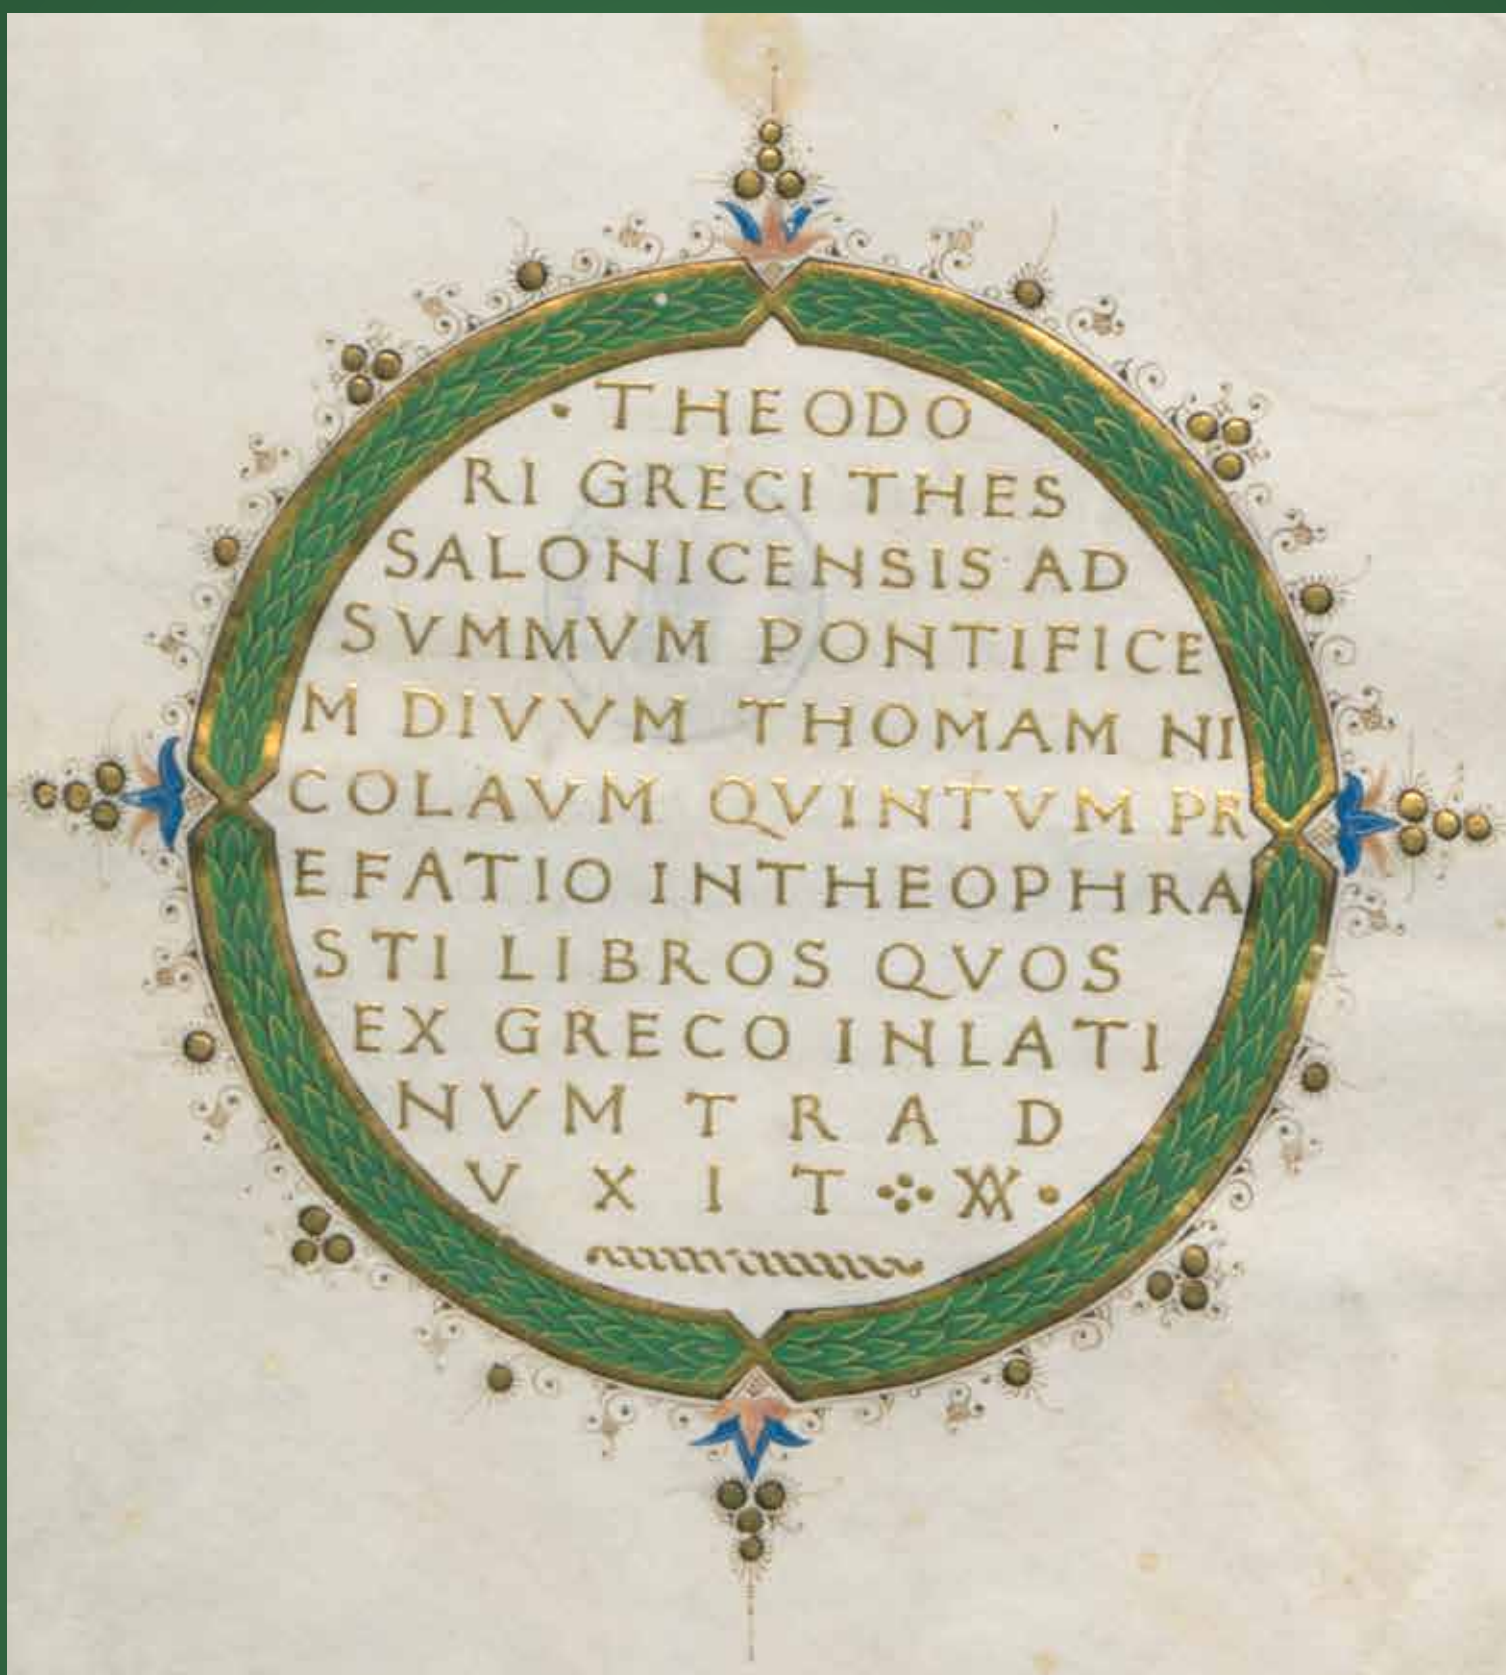 · THEODO
RI GRECI THES
SALONICENSIS· AD
SVMMVM PONTIFICE
M DIVVM THOMAM NI
COLAVM QVINTVM PR
EFATIO INTHEOPHRA
STI LIBROS QVOS
EX GRECO INLATI
NVM T R A D
V X I T